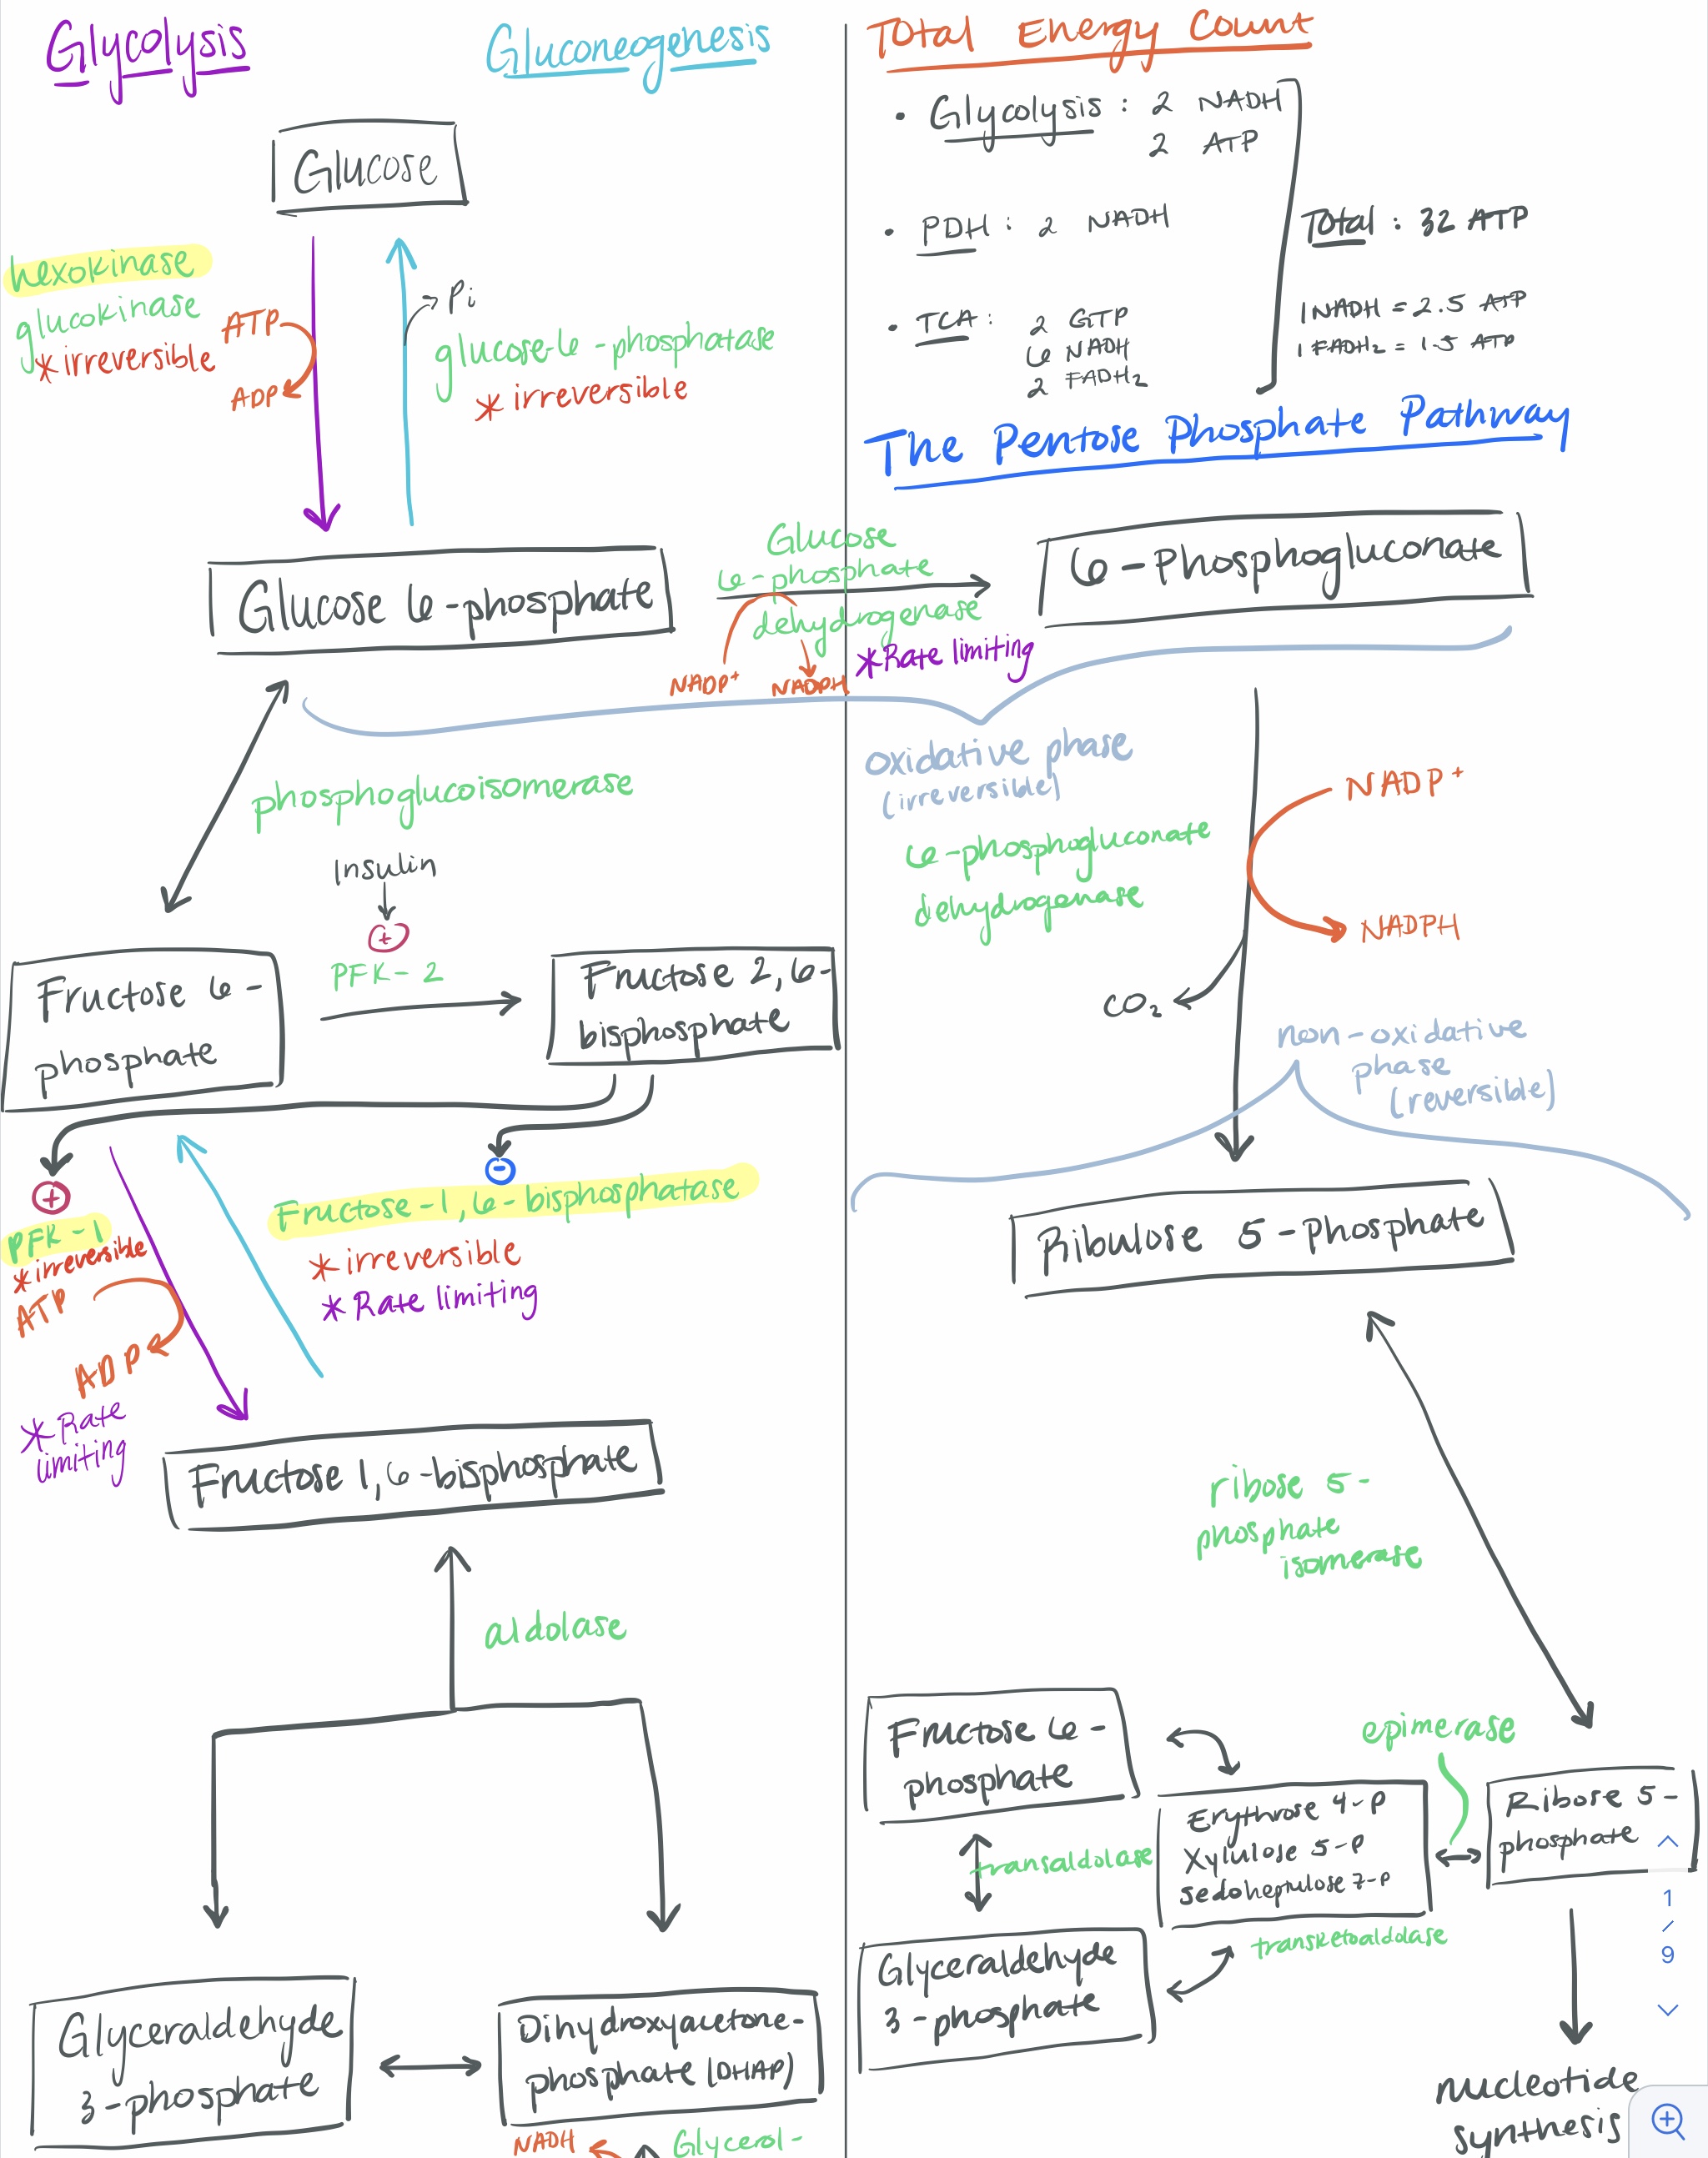 Glycolysis
Gluconeogenesis
Glucose
hexokinase
glucokinase
*irreversible
ATP
ADP
Pi
glucose-6-phosphatase
* irreversible
Glucose 6-phosphate
phosphoglucoisomerase
Insulin
+
PFK-2
Fructose 6-
phosphate
Fructose 2,6-
bisphosphate
+
PFK-1
*irreversible
ATP
ADP
* Rate
limiting
-
Fructose-1,6-bisphosphatase
* irreversible
* Rate limiting
Fructose 1,6-bisphosphate
aldolase
Glyceraldehyde
3-phosphate
Dihydroxyacetone-
phosphate (DHAP)
NADH
Glycerol-
Total Energy Count
• Glycolysis: 2 NADH
2 ATP
• PDH: 2 NADH
• TCA: 2 GTP
6 NADH
2 FADH2
Total: 32 ATP
1 NADH = 2.5 ATP
1 FADH2 = 1.5 ATP
The Pentose Phosphate Pathway
Glucose
6-phosphate
dehydrogenase
*Rate limiting
NADP+
NADPH
6-Phosphogluconate
oxidative phase
(irreversible)
6-phosphogluconate
dehydrogenase
NADP+
NADPH
CO2
non-oxidative
phase
(reversible)
Ribulose 5-phosphate
ribose 5-
phosphate
isomerase
Fructose 6-
phosphate
transaldolase
Glyceraldehyde
3-phosphate
Erythrose 4-P
Xylulose 5-P
sedoheptulose 7-P
transketoaldolase
epimerase
Ribose 5-
phosphate
nucleotide
synthesis
1
/
9